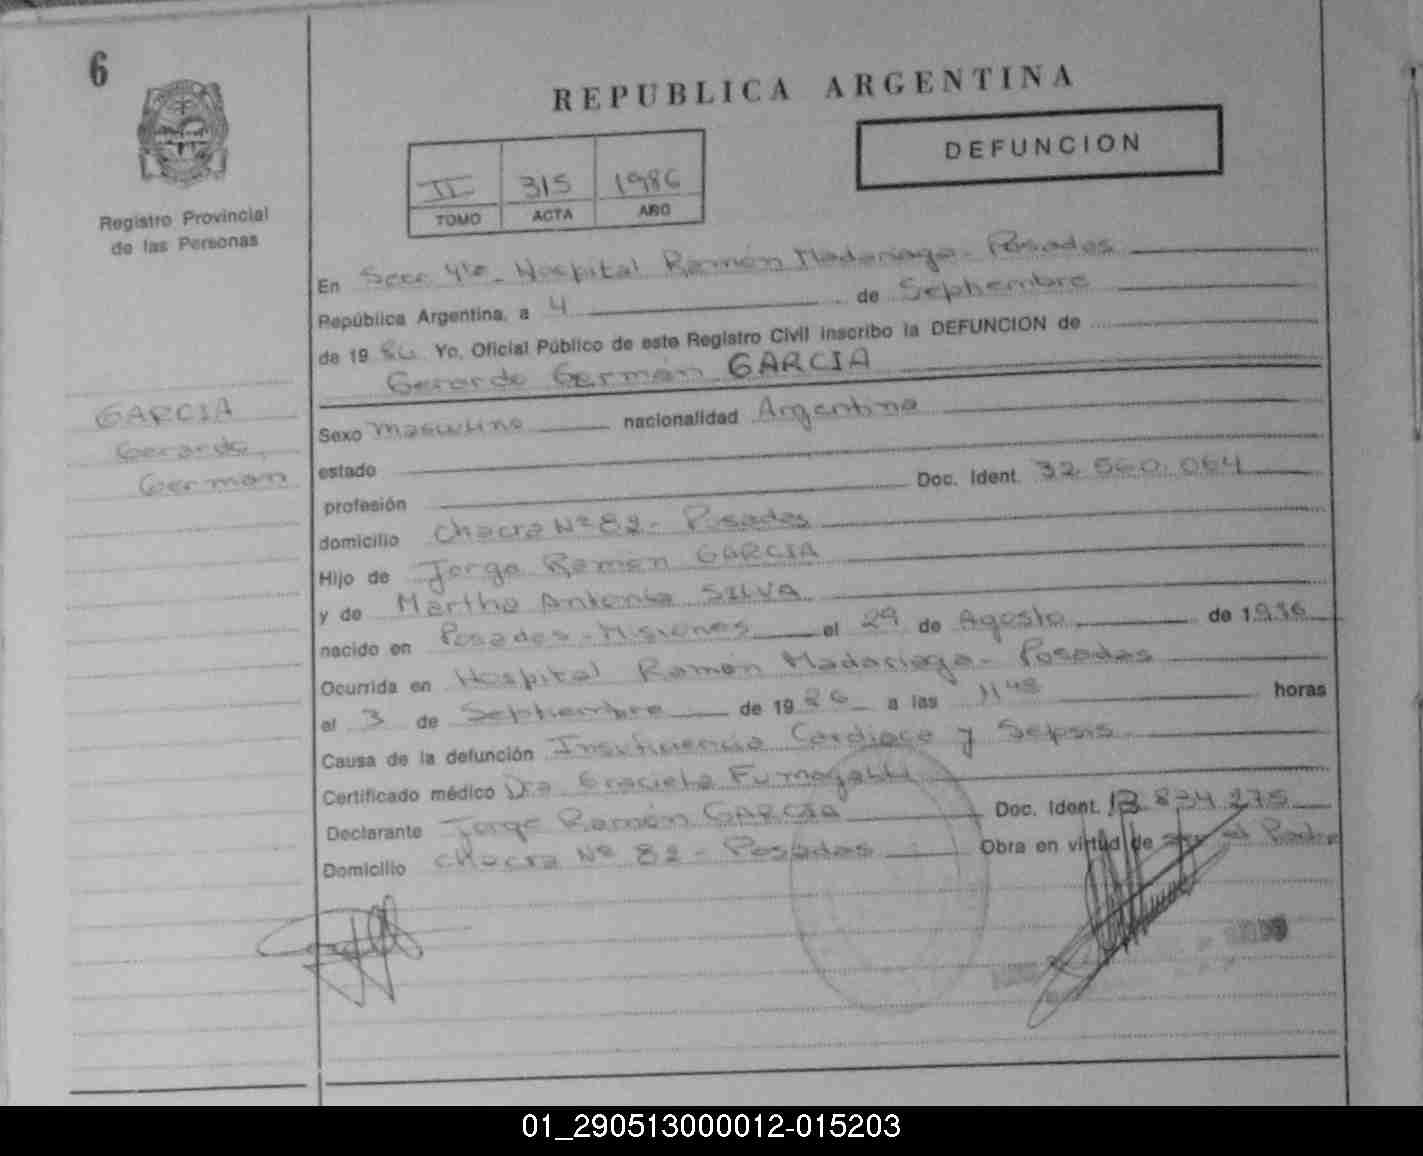 6
REPUBLICA ARGENTINA
DEFUNCION
II 315 1986
TOMO ACTA AÑO
Registro Provincial
de las Personas
En Secc 4ta - Hospital Ramón Madariaga - Posadas
República Argentina, a 4 de Septiembre
de 19 86 Yo, Oficial Público de este Registro Civil inscribo la DEFUNCION de
Gerardo Germán GARCIA
GARCIA
Gerardo
German
Sexo Masculino nacionalidad Argentina
estado
profesión Doc. Ident. 32.560.064
domicilio Chacra Nº 82 - Posadas
Hijo de Jorge Ramón GARCIA
y de Martha Antonia SILVA
nacido en Posadas - Misiones el 29 de Agosto de 1986
Ocurrida en Hospital Ramón Madariaga - Posadas
el 3 de Septiembre de 19 86 a las 11 48 horas
Causa de la defunción Insuficiencia Cardiaca y Sepsis
Certificado médico Dra Graciela Fumagalli
Declarante Jorge Ramón GARCIA Doc. Ident. 13.834.275
Domicilio Chacra Nº 82 - Posadas Obra en virtud de ser el Padre
01_290513000012-015203